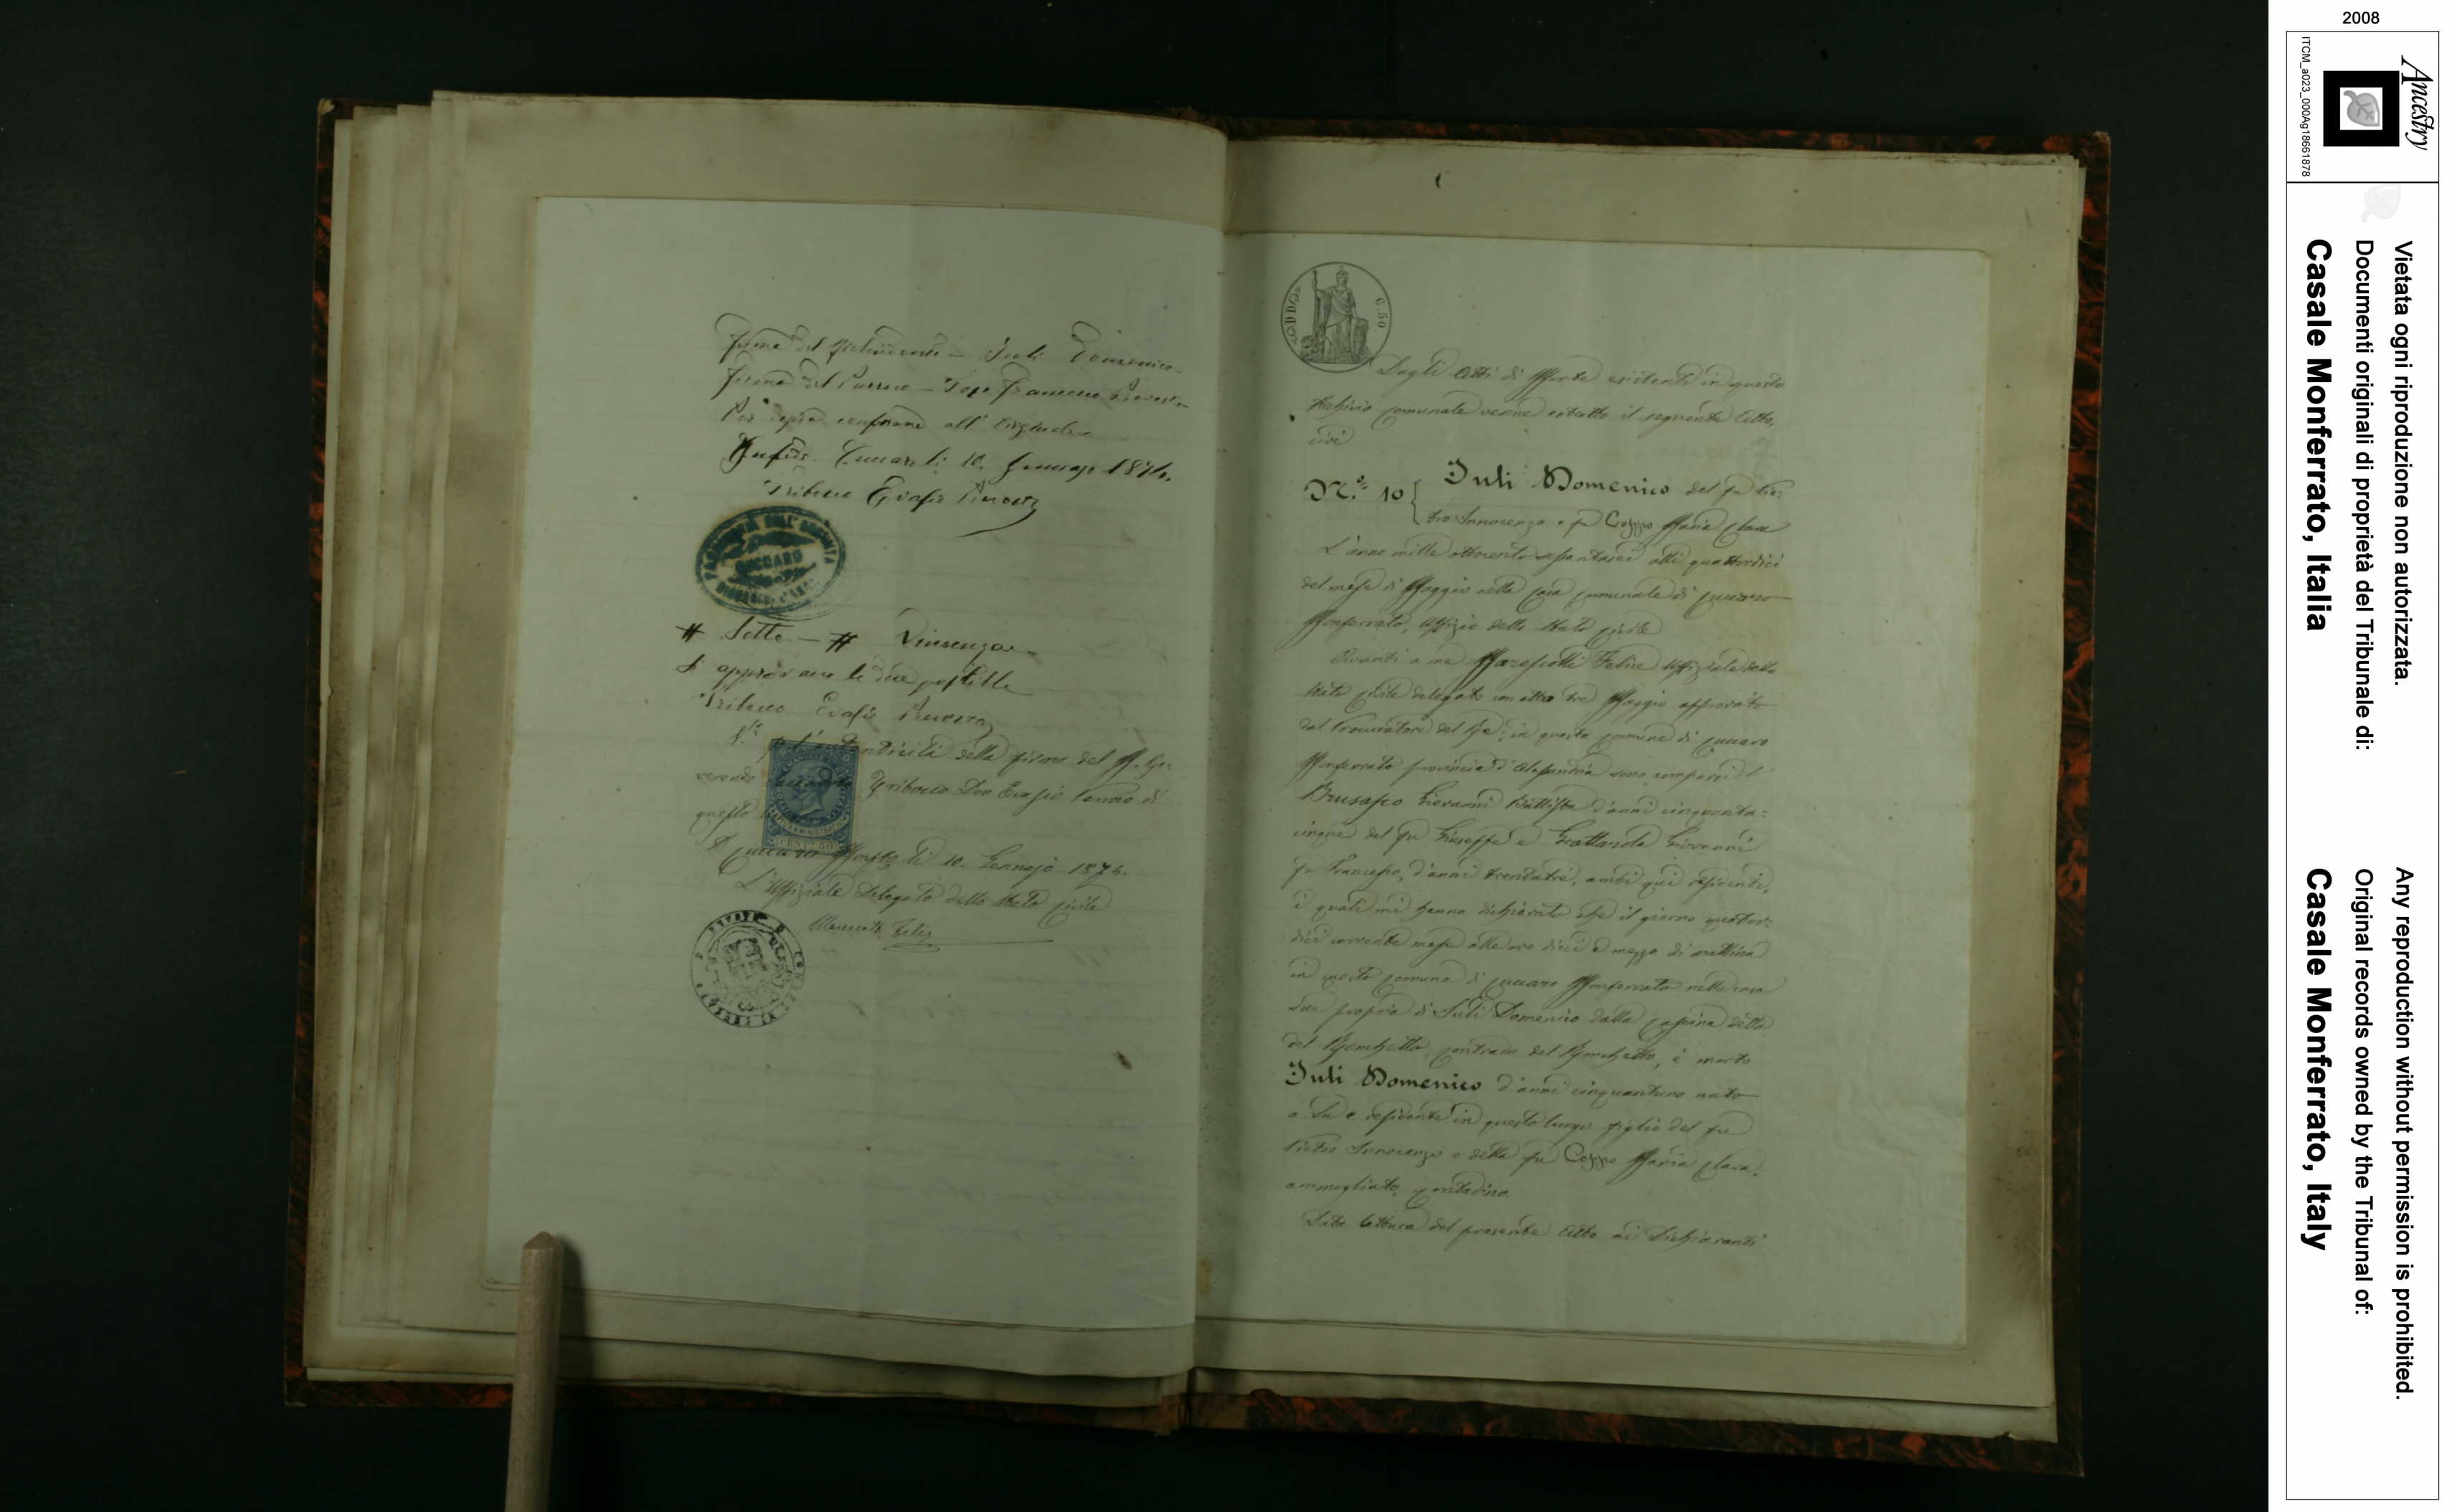 Firma del Richiedente – Iuli Domenico
Firma del Parroco – Francesco
Per copia conforme all'originale
Cuccaro li 10. Gennajo 1874.
Tribocco Evasio
PARROCCHIA DELL'
CUCCARO
# Sette – # Vincenza
Si approvano le due postille
Tribocco Evasio
della firma del M. Re-
verendo Tribocco Don Evasio Parroco di
questo
CENT. 50
Cuccaro Monfto li 10. Gennajo 1874.
L'Uffiziale Delegato dello Stato Civile
Marescotti Felice
C. 50
Dagli Atti di Morte esistenti in questo
Archivio comunale venne estratto il seguente Atto,
cioè
N.° 10 { Iuli Domenico del fu Pie:
tro Innocenzo e fu Coppo Maria Clara
L'anno mille ottocento settantasei alli quattordici
del mese di Maggio nella Casa Comunale di Cuccaro
Monferrato, Uffizio dello Stato Civile
Avanti a me Marescotti Felice Uffiziale dello
Stato Civile delegato con atto tre Maggio approvato
dal Procuratore del Re; in questo Comune di Cuccaro
Monferrato provincia d'Alessandria sono comparsi
Brusasco Giovanni Battista d'anni cinquanta:
cinque del fu Giuseppe e Grattarola Giovanni
fu Francesco, d'anni trentatre, ambi qui residenti,
i quali mi hanno dichiarato che il giorno quattor:
dici corrente mese alle ore dieci e mezza di mattina
in questo Comune di Cuccaro Monferrato nella casa
sua propria di Iuli Domenico dalla Cascina detta
del Ronchetto, contrada del Ronchetto, è morto
Iuli Domenico d'anni cinquantuno nato
a Lu e residente in questo luogo figlio del fu
Pietro Innocenzo e della fu Coppo Maria Clara,
ammogliato, contadino.
Data lettura del presente Atto ai Dichiaranti
2008
Ancestry
ITCM_a023_000Ag18661878
Vietata ogni riproduzione non autorizzata.
Documenti originali di proprietà del Tribunale di:
Casale Monferrato, Italia
Any reproduction without permission is prohibited.
Original records owned by the Tribunal of:
Casale Monferrato, Italy